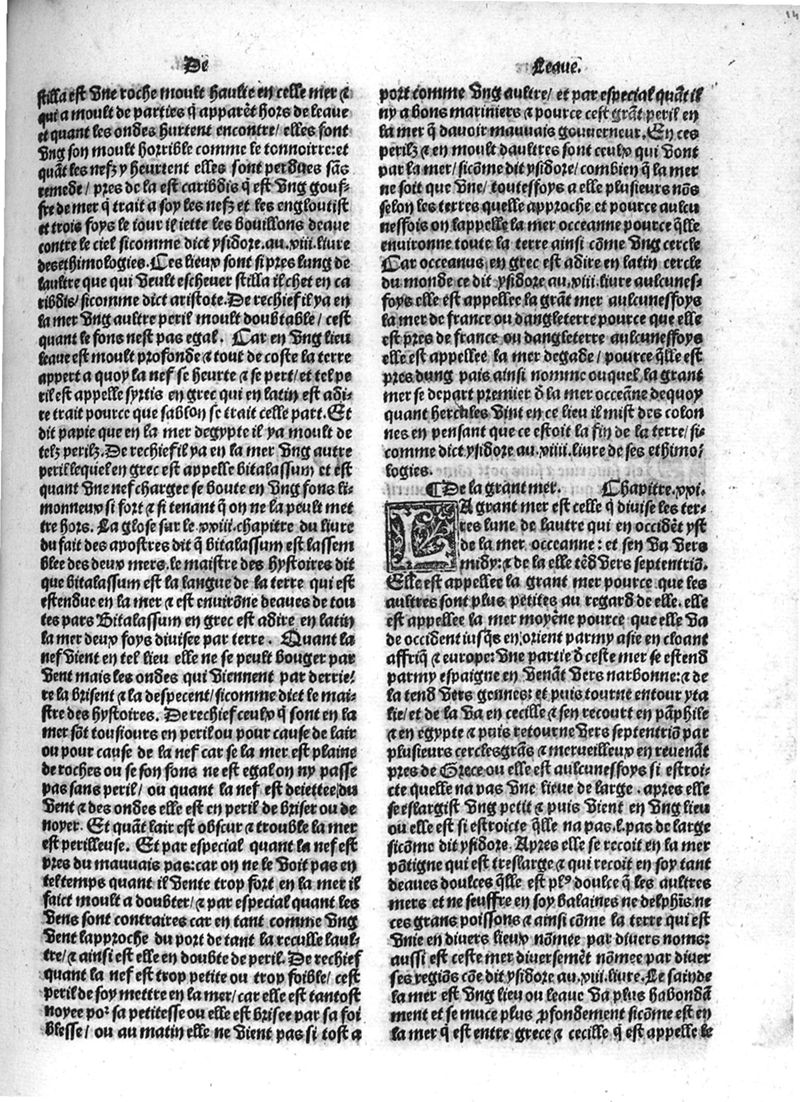 14
De
Leaue.
stilla est Vne roche moult haulte en celle mer ⁊
qui a moult de parties q̃ apparẽt hors de leaue
et quant les ondes hurtent encontre/ elles sont
Vng son moult horrible comme le tonnoirre: et
quãt les nefz y heurtent elles sont perdues sãs
remede/ pres de la est caribdis q̃ est Vng gouf⸗
fre de mer q̃ trait a soy les nefz et les engloutist
et trois foys le iour il iette les bouillons deaue
contre le ciel sicomme dict ysidore. au .viii. liure
des ethimologies. Ces lieux sont si pres lung de
laultre que qui Veult escheuer stilla il chet en ca
ribdis/ sicomme dict aristote. De rechief il ya en
la mer Vng aultre peril moult doubtable/ cest
quant le fons nest pas egal. Car en Vng lieu
leaue est moult profonde ⁊ tout de coste la terre
appert a quoy la nef se heurte ⁊ se pert/ et tel pe
ril est appelle syrtis en grec qui en latin est adi⸗
re trait pource que sablon se trait celle part. Et
dit papie que en la mer degypte il ya moult de
telz perilz. De rechief il ya en la mer Vng autre
peril lequel en grec est appelle bitalassum et est
quant Vne nef chargee se boute en Vng fons li⸗
monneux si fort ⁊ si tenant q̃ on ne la peult met
tre hors. La glose sur le .xxiii. chapitre du liure
du fait des apostres dit q̃ bitalassum est lassem
blee des deux mers. le maistre des hystoires dit
que bitalassum est la langue de la terre qui est
estendue en la mer ⁊ est enuirõne deaues de tou
tes pars Bitalassum en grec est adire en latin
la mer deux foys diuisee par terre. Quant la
nef Vient en tel lieu elle ne se peult bouger par
Vent mais les ondes qui Viennent par derrie⸗
re la brisent ⁊ la despecent/ sicomme dict le mai⸗
stre des hystoires. De rechief ceulx q̃ sont en la
mer sõt tousiours en peril ou pour cause de lair
ou pour cause de la nef car se la mer est plaine
de roches ou se son fons ne est egal on ny passe
pas sans peril/ ou quant la nef est deiettee du
Vent ⁊ des ondes elle est en peril de briser ou de
noyer. Et quãt lair est obscur ⁊ trouble la mer
est perilleuse. Et par especial quant la nef est
pres du mauuais pas: car on ne le Voit pas en
tel temps quant il Vente trop fort en la mer il
faict moult a doubter/ ⁊ par especial quant les
Vens sont contraires car en tant comme Vng
Vent lapproche du port de tant la reculle laul⸗
tre/ ⁊ ainsi est elle en doubte de peril. De rechief
quant la nef est trop petite ou trop foible/ cest
peril de soy mettre en la mer/ car elle est tantost
noyee por sa petitesse ou elle est brisee par sa foi
blesse/ ou au matin elle ne Vient pas si tost a
port comme Vng aultre/ et par especial quãt il
ny a bons mariniers ⁊ pource cest grãt peril en
la mer q̃ dauoir mauuais gouuerneur. En ces
perilz ⁊ en moult daultres sont ceulx qui Vont
par la mer/ sicõme dit ysidore/ combien q̃ la mer
ne soit que Vne/ toutesfoys a elle plusieurs nõs
selon les terres quelle approche et pource aulcu
nesfois on lappelle la mer occeanne pource q̃lle
enuironne toute la terre ainsi cõme Vng cercle
Car occeanus en grec est adire en latin cercle
du monde ce dit ysidore au .viii. liure aulcunes⸗
foys elle est appellee la grãt mer aulcunesfoys
la mer de france ou dangleterre pource que elle
est pres de france ou dangleterre aulcunesfoys
elle est appellee la mer degade/ pource q̃lle est
pres dung pais ainsi nomme ouquel la grant
mer se depart premier d̃ la mer occeãne dequoy
quant hercules Vint en ce lieu il mist des colon
nes en pensant que ce estoit la fin de la terre/ si⸗
comme dict ysidore au .viiii. liure de ses ethimo⸗
logies.
¶ De la grant mer. Chapitre .xxi.
LA grant mer est celle q̃ diuise les ter⸗
res lune de lautre qui en occidẽt yst
de la mer occeanne: et sen Va Vers
midy: ⁊ de la elle tẽd Vers septentriõ.
Elle est appellee la grant mer pource que les
aultres sont plus petites au regard de elle. elle
est appellee la mer moyẽne pource que elle Va
de occident iusq̃s en orient parmy asie en cloant
affriq̃ ⁊ europe: Vne partie d̃ ceste mer se estend
parmy espaigne en Venãt Vers narbonne: ⁊ de
la tend Vers gennes: et puis tourne entour yta
lie/ et de la Va en cecille ⁊ sen recourt en pãphile
⁊ en egypte ⁊ puis retourne Vers septentriõ par
plusieurs cercles grãs ⁊ merueilleux en reuenãt
pres de Grece ou elle est aulcunesfoys si estroi⸗
cte quelle na pas Vne lieue de large. apres elle
se eslargist Vng petit ⁊ puis Vient en Vng lieu
ou elle est si estroicte q̃lle na pas .l. pas de large
sicõme dit ysidore. Apres elle se recoit en la mer
põtique qui est treslarge ⁊ qui recoit en soy tant
deaues doulces q̃lle est plꝰ doulce q̃ les aultres
mers et ne seuffre en soy balaines ne delphĩs ne
ces grans poissons ⁊ ainsi cõme la terre qui est
Vnie en diuers lieux nõmee par diuers noms:
aussi est ceste mer diuersemẽt nõmee par diuer
ses regiõs cõe dit ysidore au .viii. liure. Le sainde
la mer est Vng lieu ou leaue Va plus habondã
ment et se muce plus ꝓfondement sicõme est en
la mer q̃ est entre grece ⁊ cecille q̃ est appelle le